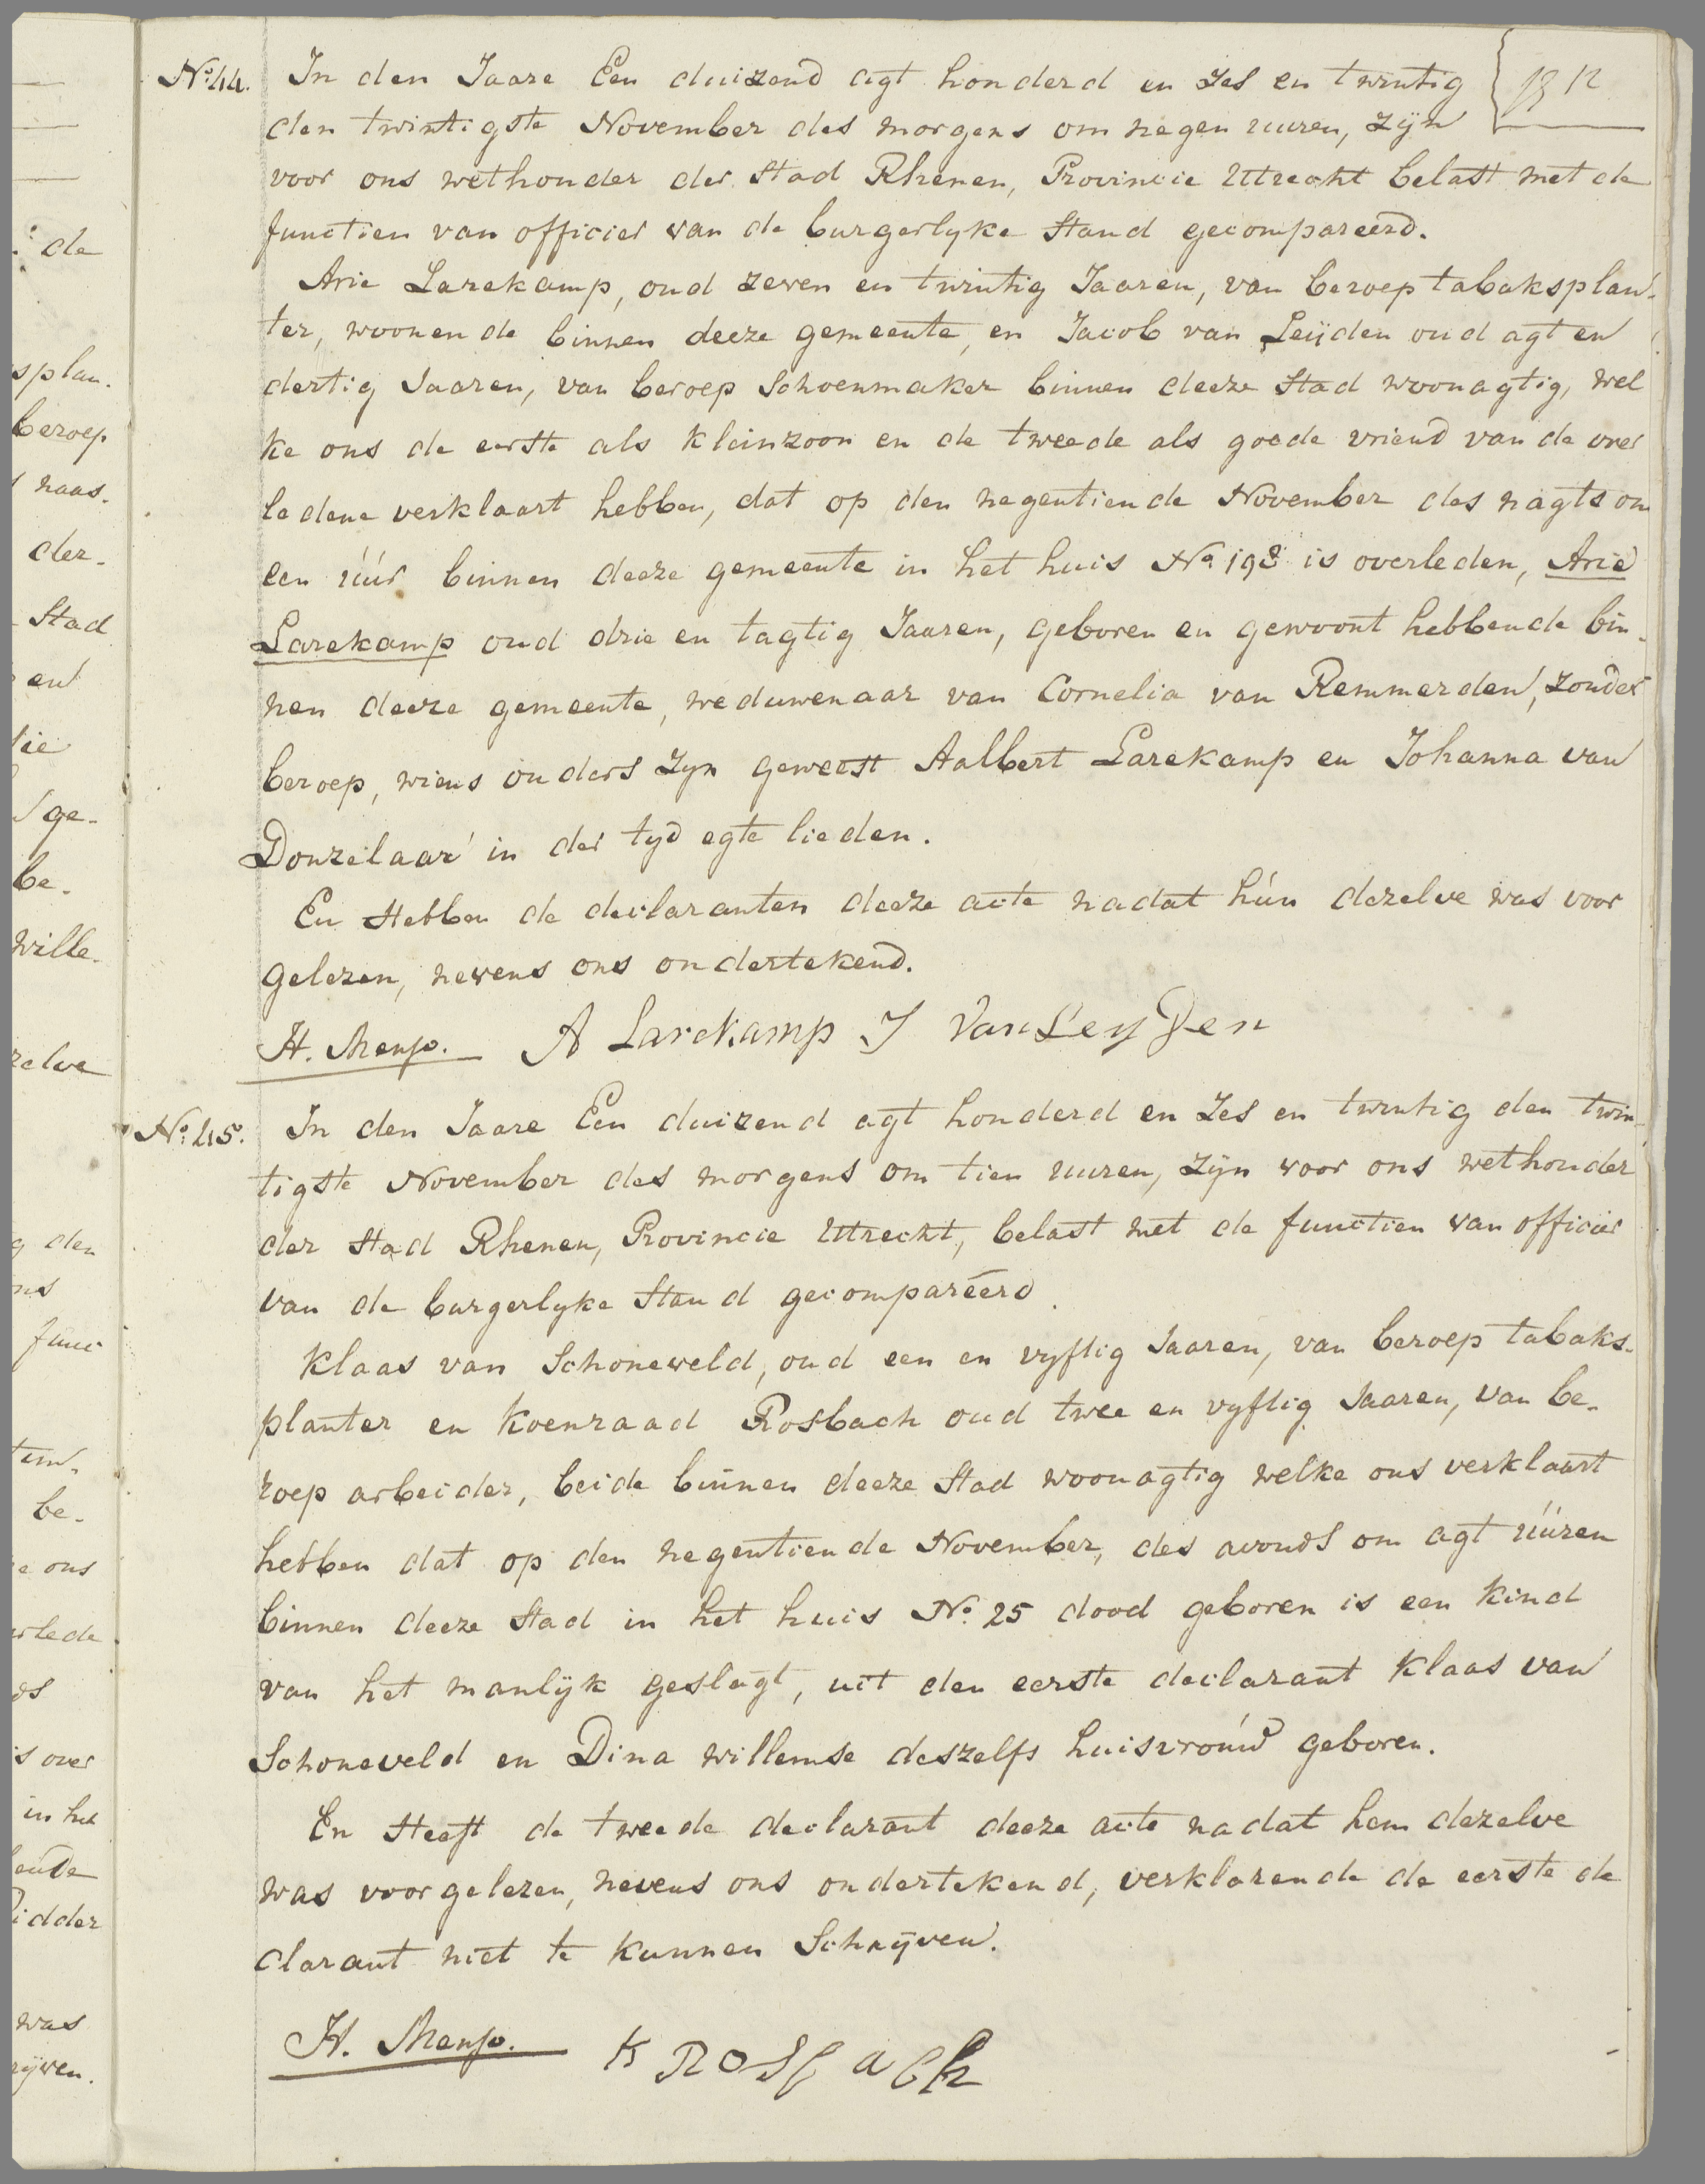 No. 44. In den Jaare Een duizend agt honderd en zes en twintig
den twintigste November des morgens om negen uuren, zÿn
voor ons wethouder der Stad Rhenen, Provincie Uttrecht belast met de
functien van officier van de burgerlyke Stand gecompareerd.
Arie Larekamp, oud zeven en twintig Jaaren, van beroep tabaksplan-
ter, woonende binnen deeze gemeente, en Jacob van Leÿden oud agt en
dertig Jaaren, van beroep Schoenmaker binnen deeze Stad woonagtig, wel
ke ons de eerste als kleinzoon en de tweede als goede vriend van de over
ledene verklaart hebben, dat op den negentiende November des nagts om
een uúr binnen deeze gemeente in het huis No. 198 is overleden, Arie
Larekamp oud drie en tagtig Jaaren, geboren en gewoont hebbende bin-
nen deeze gemeente, weduwenaar van Cornelia van Remmerden, zonder
beroep, wiens ouders zyn geweest Aalbert Larekamp en Johanna van
Donzelaar in der tyd egte lieden.
En Hebben de declaranten deeze acte nadat hún dezelve was voor
gelezen, nevens ons ondertekend.
H. Menso. A Larekamp J van Leyden
No. 45. In den Jaare Een duizend agt honderd en zes en twintig den twin-
tigste November des morgens om tien uuren, zÿn voor ons wethouder
der Stad Rhenen, Provincie Uttrecht, belast met de functien van officier
van de burgerlyke Stand gecompareerd.
Klaas van Schoneveld, oud een en vyftig Jaaren, van beroep tabaks-
planter en Koenraad Rosbach oud twee en vyftig Jaaren, van be-
roep arbeider, beide binnen deeze Stad woonagtig welke ons verklaart
hebben dat op den negentiende November, des avonds om agt uúren
binnen deeze Stad in het huis No. 25 dood geboren is een kind
van het manlÿk geslagt, uit den eerste declarant Klaas van
Schoneveld en Dina Willemse deszelfs huisvrouw geboren.
En Heeft de tweede declarant deeze acte nadat hem dezelve
was voorgelezen, nevens ons ondertekend, verklarende de eerste de
clarant niet te kunnen Schrÿven.
H. Menso. K ROSbach